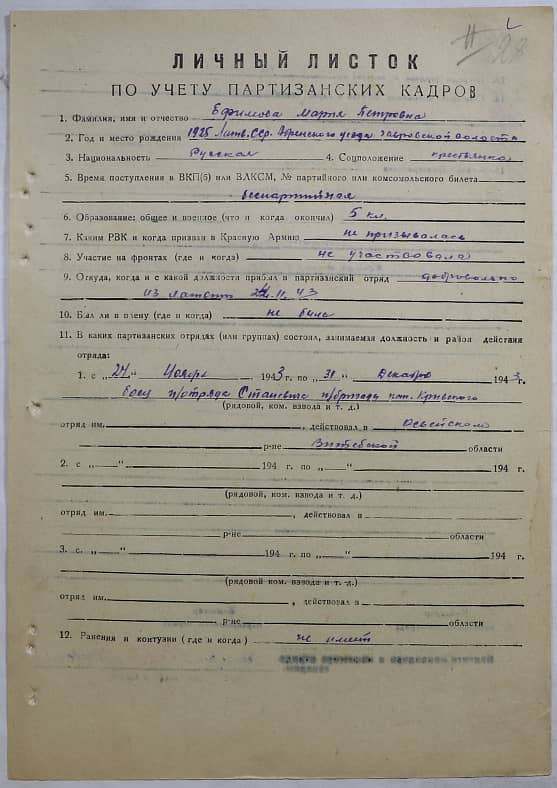 28
ЛИЧНЫЙ ЛИСТОК
ПО УЧЕТУ ПАРТИЗАНСКИХ КАДРОВ
1. Фамилия, имя и отчество Ефимова Мария Петровна
2. Год и место рождения 1925 Латв. ССР. уезда волость
3. Национальность Русская 4. Соцположение крестьянка
5. Время поступления в ВКП(б) или ВЛКСМ, № партийного или комсомольского билета
беспартийная
6. Образование: общее и военное (что и когда окончил) 5 кл.
7. Каким РВК и когда призван в Красную Армию не призывалась
8. Участие на фронтах (где и когда) не участвовала
9. Откуда, когда и с какой должности прибыл в партизанский отряд добровольно
из Латвии 24.11.43
10. Был ли в плену (где и когда) не была
11. В каких партизанских отрядах (или группах) состоял, занимаемая должность и район действия
отряда:
1. с „24“ Ноября 1943 г. по „31“ Декабрь 1943 г.
боец п/отряда п/бригады
(рядовой, ком. взвода и т. д.)
отряд им. , действовал в Освейском
р-не Витебской области
2. с „ “ 194 г. по „ “ 194 г.
(рядовой, ком. взвода и т. д.)
отряд им. , действовал в
р-не области
3. с. „ “ 194 г. по „ “ 194 г.
(рядовой, ком. взвода и т. д.)
отряд им. , действовал в
р-не области
12. Ранения и контузии (где и когда) не имеет